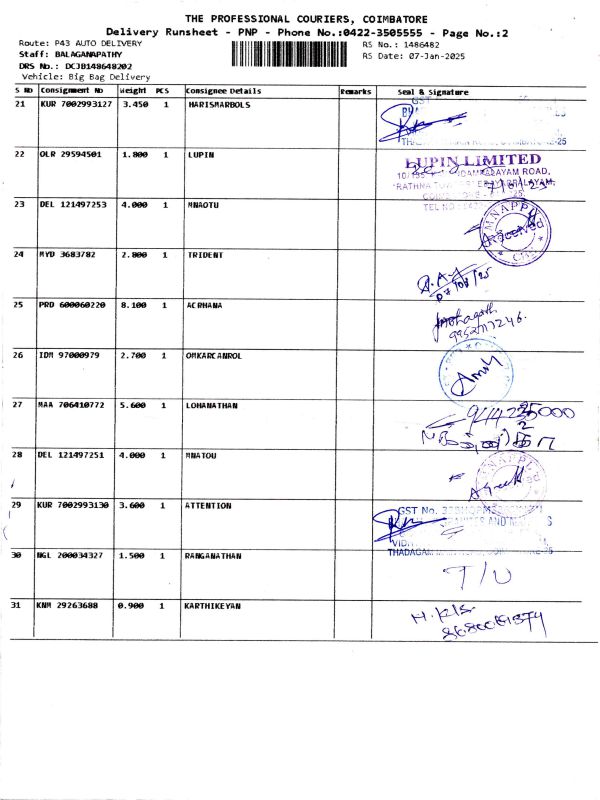 THE PROFESSIONAL COURIERS, COIMBATORE
Delivery Runsheet - PNP - Phone No.:0422-3505555 - Page No.:2
Route: P43 AUTO DELIVERY
RS No.: 1486482
Staff: BALAGANAPATHY
RS Date: 07-Jan-2025
DRS No.: DCJB148648202
Vehicle: Big Bag Delivery
S NO Consignment No Weight PCS Consignee Details Remarks Seal & Signature
21 KUR 7002993127 3.450 1 HARISMARBOLS
GST
22 OLR 29594501 1.800 1 LUPIN
LUPIN LIMITED
ROAD,
TEL NO
23 DEL 121497253 4.000 1 MNAOTU
Received
24 MYD 3683782 2.800 1 TRIDENT
07/01/25
25 PRD 600060220 8.100 1 ACRHANA
9952117246.
26 IDM 97000979 2.700 1 OMKARCANROL
27 MAA 706410772 5.600 1 LOHANATHAN
28 DEL 121497251 4.000 1 MNATOU
29 KUR 7002993130 3.600 1 ATTENTION
GST No.
30 NGL 200034327 1.500 1 RANGANATHAN
T/U
31 KNM 29263688 0.900 1 KARTHIKEYAN